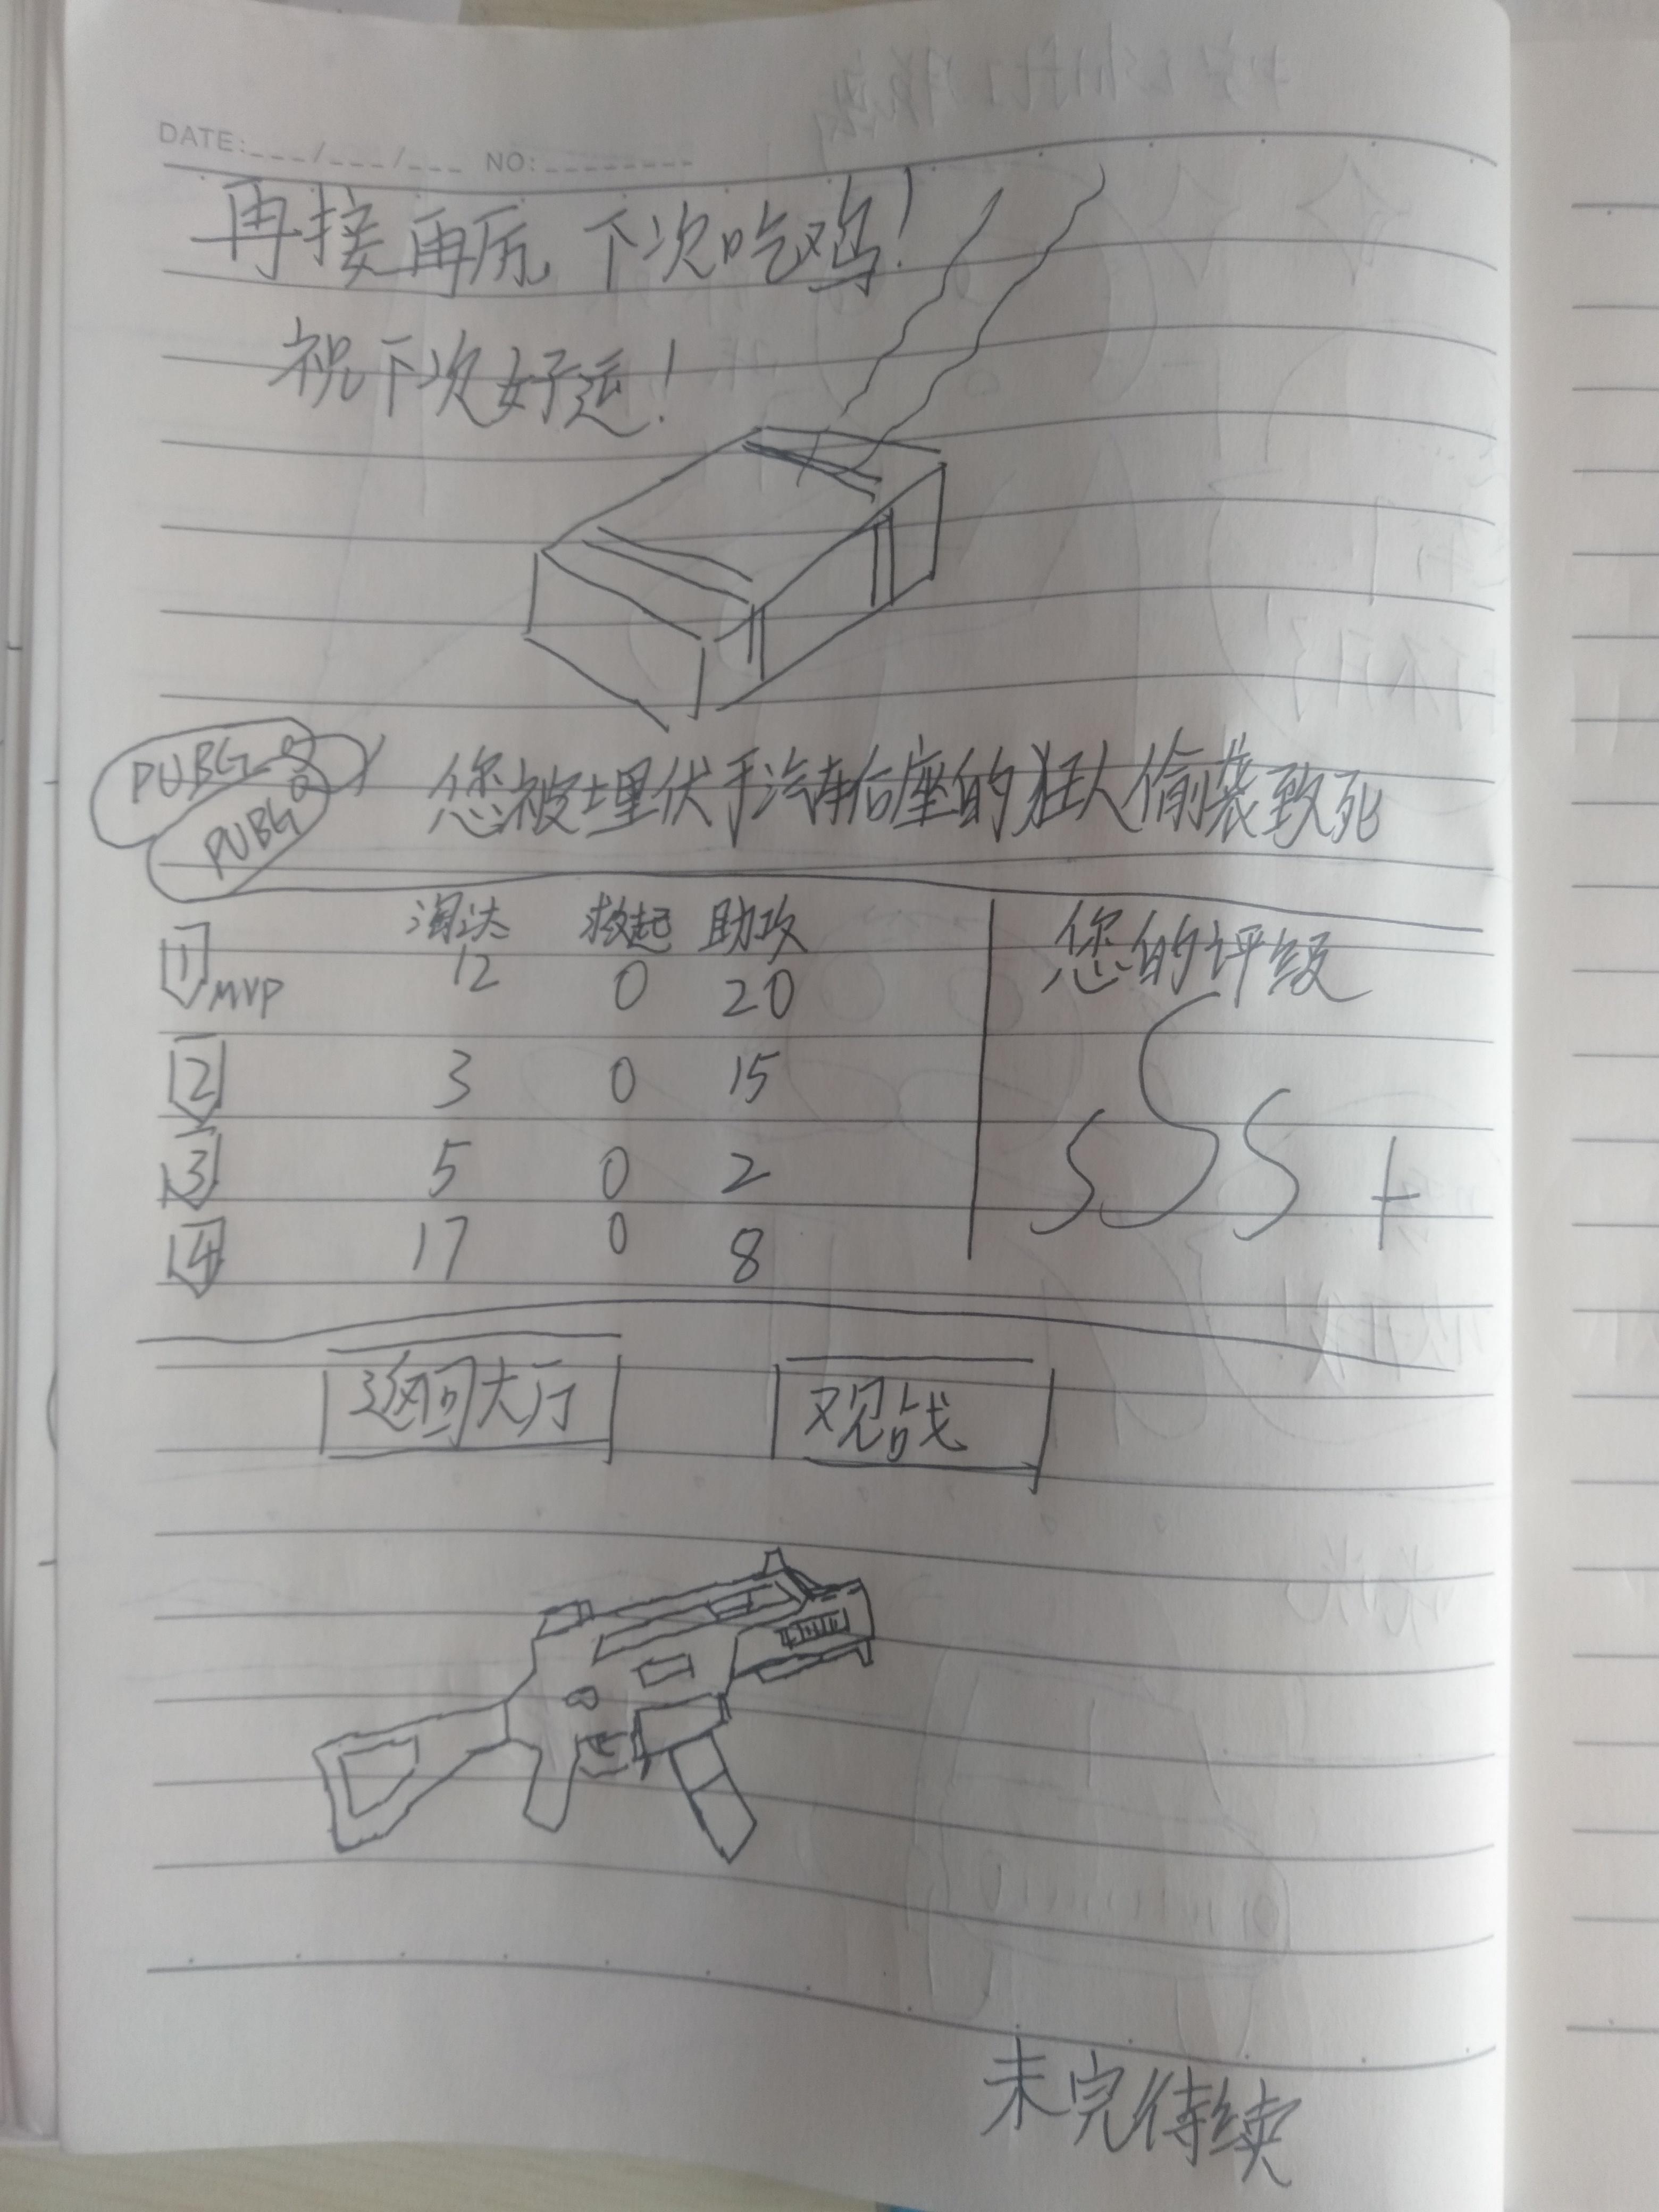 DATE:___/___/___ NO:________
再接再厉,下次吃鸡!
祝下次好运!
PUBG
PUBG
您被埋伏于汽车后座的狂人偷袭致死
淘汰 救起 助攻
1 MVP 12 0 20
2 3 0 15
3 5 0 2
4 17 0 8
您的评级
SSS+
返回大厅
观战
未完待续